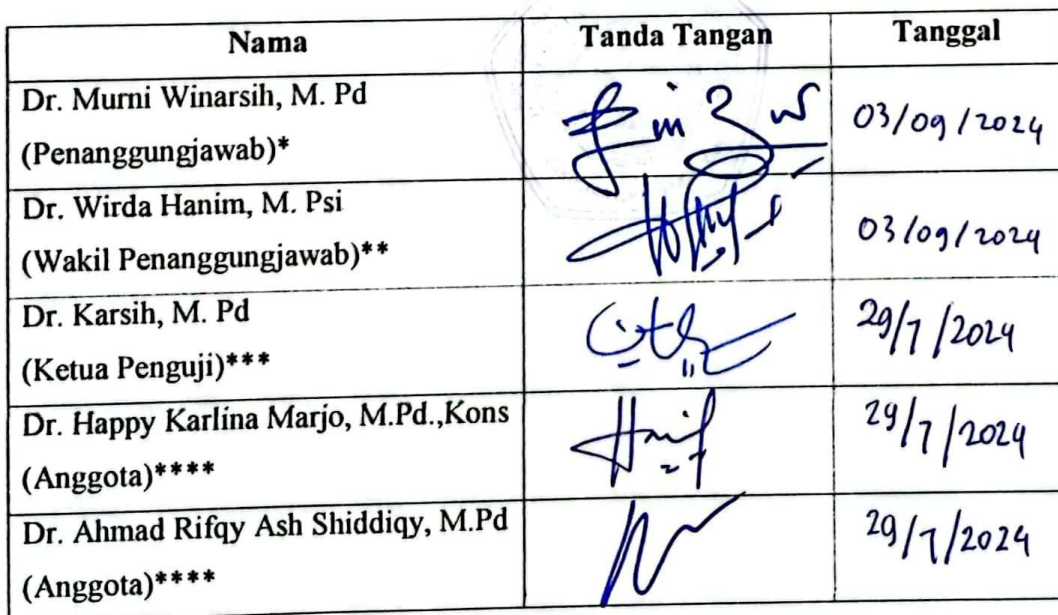 Nama Tanda Tangan Tanggal
Dr. Murni Winarsih, M. Pd
(Penanggungjawab)*
03/09/2024
Dr. Wirda Hanim, M. Psi
(Wakil Penanggungjawab)**
03/09/2024
Dr. Karsih, M. Pd
(Ketua Penguji)***
29/7/2024
Dr. Happy Karlina Marjo, M.Pd.,Kons
(Anggota)****
29/7/2024
Dr. Ahmad Rifqy Ash Shiddiqy, M.Pd
(Anggota)****
29/7/2024